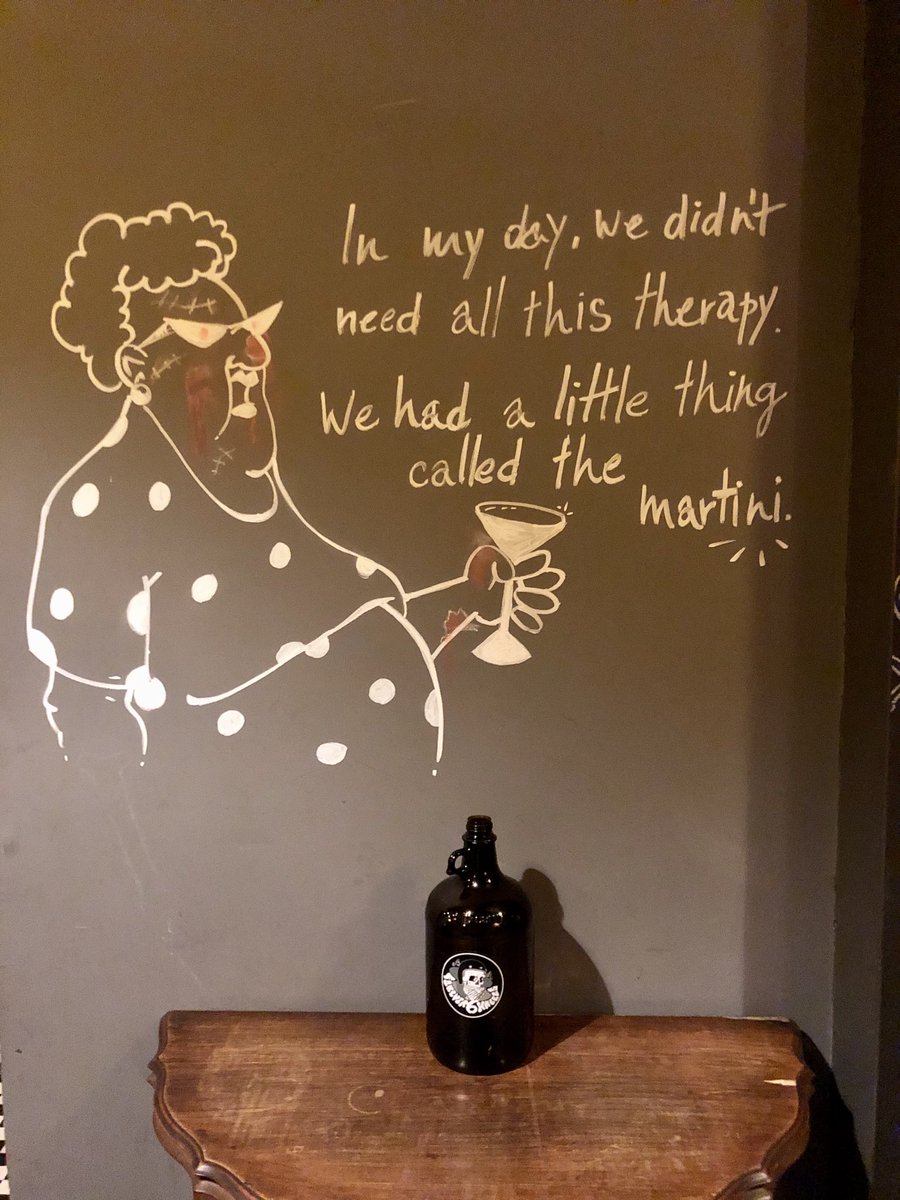 In my day, we didn't
need all this therapy.
We had a little thing
called the
martini.